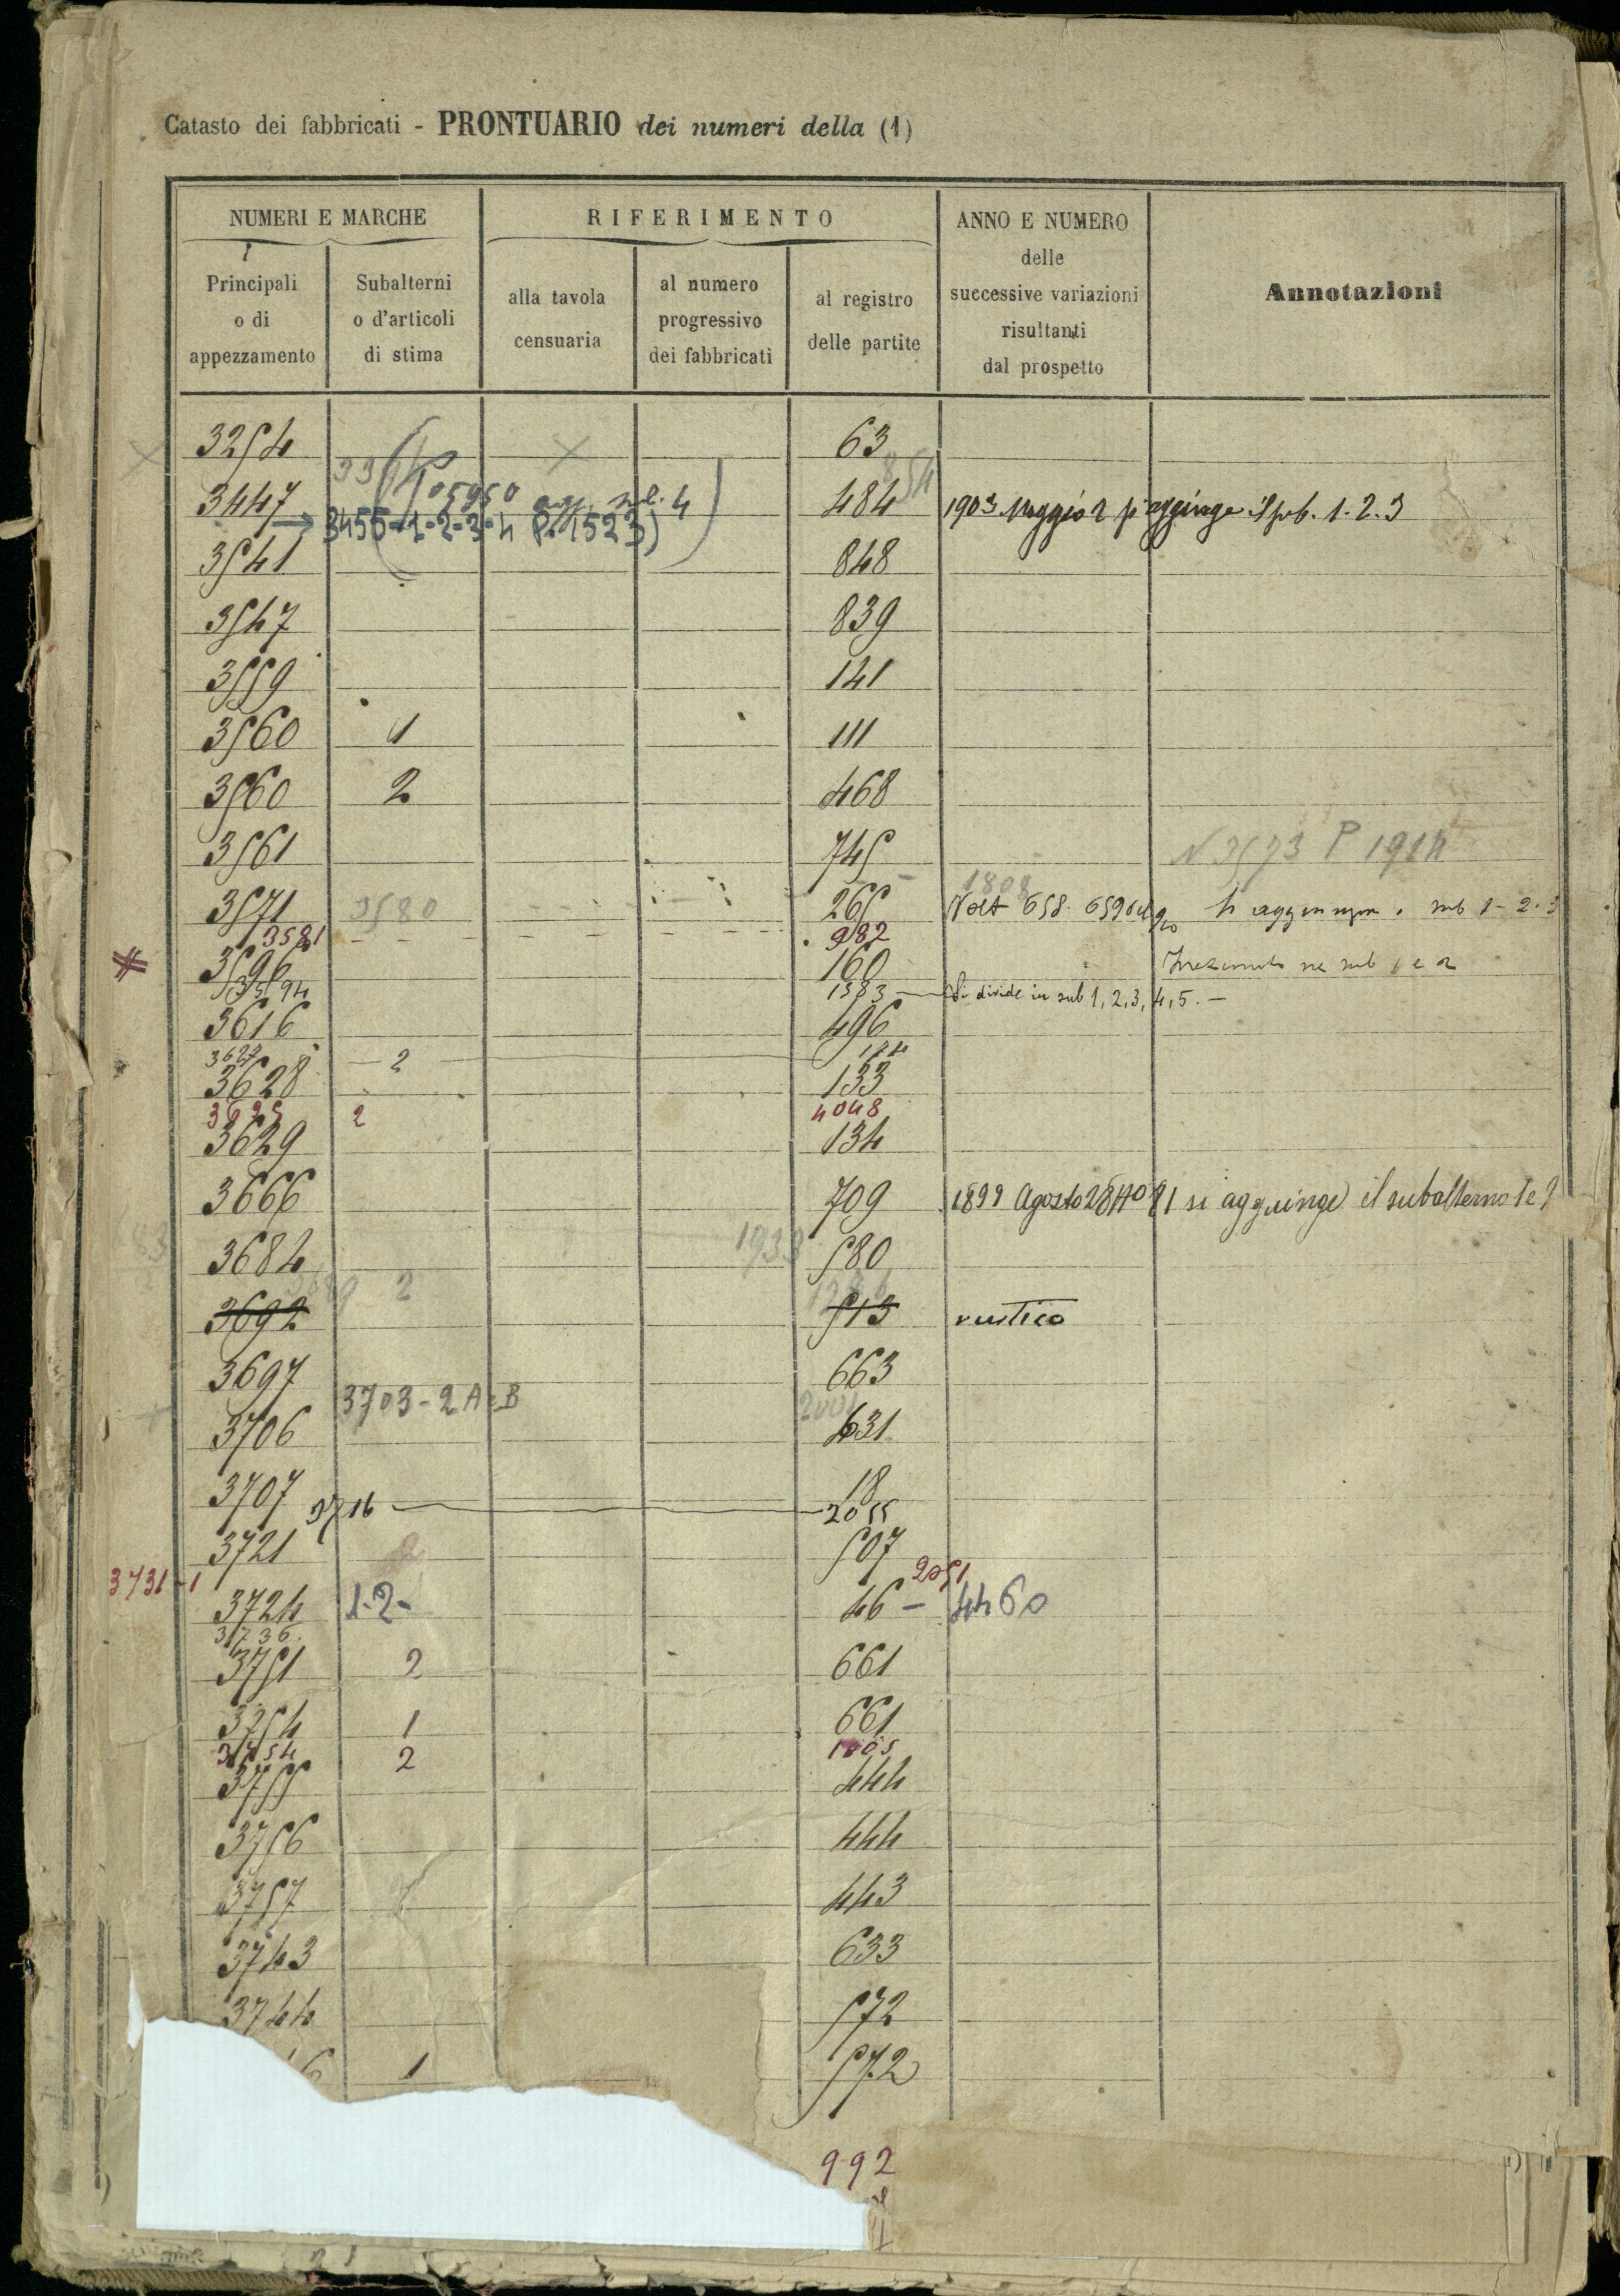 Catasto dei fabbricati - PRONTUARIO dei numeri della (1)
NUMERI E MARCHE RIFERIMENTO ANNO E NUMERO delle successive variazioni risultanti dal prospetto Annotazioni
Principali o di appezzamento Subalterni o d'articoli di stima alla tavola censuaria al numero progressivo dei fabbricati al registro delle partite
3254 63
854
3447 484 1903 Maggio 2 si aggiunge il sub. 1. 2. 3
→ 3455-1-2-3-4 (P. 1523) 4
3541 848
3547 839
3559 141
3560 1 111
3560 2 468
3561 745 N 3573 P 1914
1808
3571 3580 265 Volt 658. 659 si aggiungon. sub 1-2.3
3581 982
3596 160 sub 1 e 2
3594 1583 — Si divide in sub 1, 2, 3, 4, 5. —
3616 496
3627 2
3628 133
3625 2 4048
3629 134
3666 709 1899 Agosto 28 si aggiunge il subalterno 1 e 2
3684 1933 580
2
3692 513 rustico
3697 663
3703 - 2 A e B
3706 631
3707 18
3716 2055
3721 507
3731-1 2051
3724 1-2- 46 - 4460
3736
3751 2 661
3754 1 661
3754 2 1005
3755 444
3756 444
3757 443
3743 633
3744 572
6 1 572
992